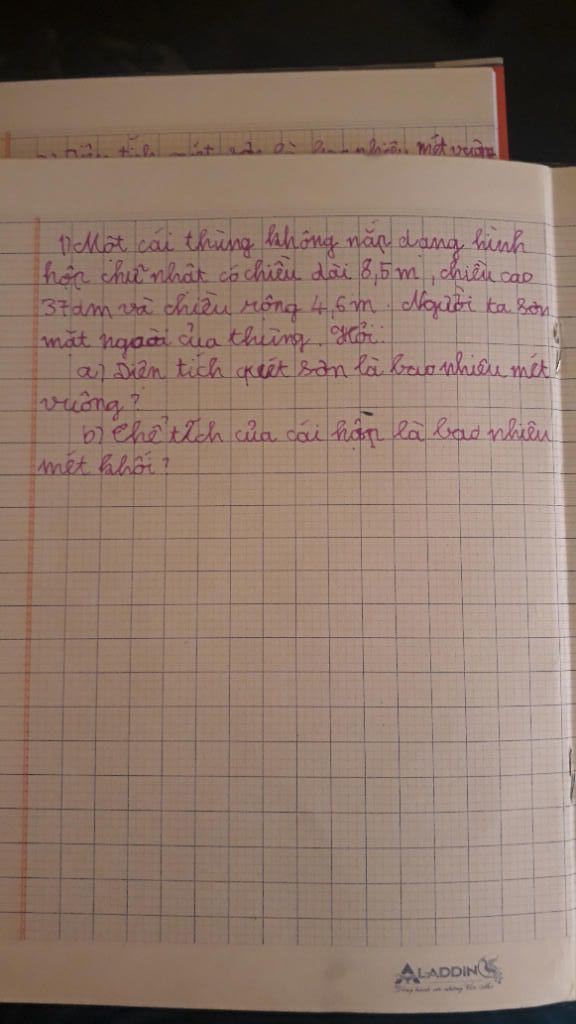 mét vuông
1) Một cái thùng không nắp dạng hình
hộp chữ nhật có chiều dài 8,5m, chiều cao
37dm và chiều rộng 4,6m. Người ta sơn
mặt ngoài của thùng. Hỏi:
a) Diện tích quét sơn là bao nhiêu mét
vuông?
b) Thể tích của cái hộp là bao nhiêu
mét khối?
ALADDIN